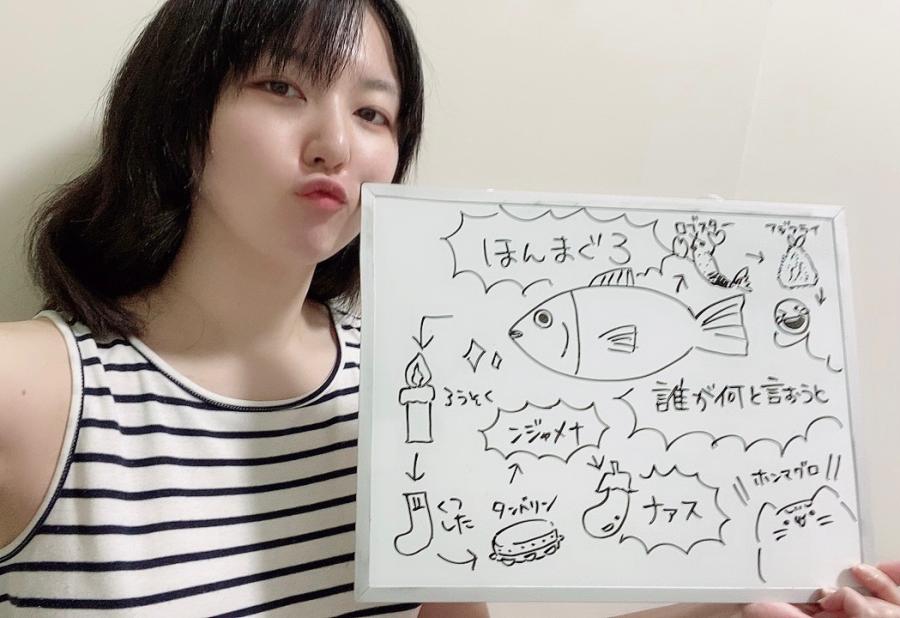 ほんまぐろ
ロブスター
アジフライ
誰が何と言おうと
ろうそく
くつ
した
タンバリン
ンジャメナ
ナァス
ホンマグロ